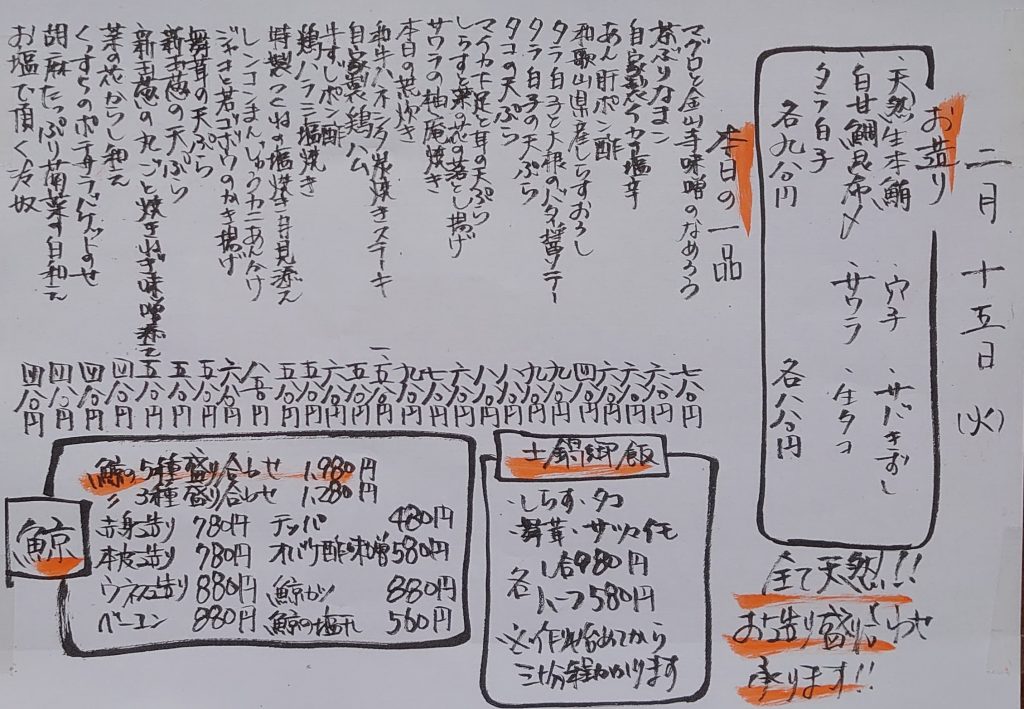 二月十五日(火)
お造り
・天然生本鮪 ・穴子 ・サバきずし
・白甘鯛昆布〆 ・サワラ ・生タコ
・タラ白子
各九八〇円 各八八〇円
全て天然!!
お造り盛り合わせ
承ります!!
本日の一品
マグロと金山寺味噌のなめろう 七八〇円
茶ぶりなまこ 六八〇円
自家製イカの塩辛 六八〇円
あん肝ポン酢 六八〇円
和歌山県産しらすおろし 四八〇円
タラ白子と大根のバタ醤ソテー 九八〇円
タラ白子の天ぷら 九八〇円
タコの天ぷら 八八〇円
足と耳の天ぷら 八八〇円
しらすと菜の花落とし揚げ 六八〇円
サワラの柚庵焼き 七八〇円
本日の荒炊き 九八〇円
和牛ハネシタ炭焼きステーキ 一、五八〇円
自家製鶏ハム 五八〇円
牛すじポン酢 六八〇円
鶏ハラミ塩焼き 五八〇円
特製つくねの塩焼き月見添え 五八〇円
レンコンまんじゅうカニあんかけ 八八〇円
ジャコと若ゴボウのかき揚げ 六八〇円
舞茸の天ぷら 五八〇円
新玉葱の天ぷら 五八〇円
新玉葱の丸ごと焼きねぎ味噌添え 五八〇円
菜の花からし和え 四八〇円
ポテサラバゲットのせ 四八〇円
胡麻たっぷり菊菜の白和え 四八〇円
お塩で頂く冷奴 四八〇円
土鍋御飯
・しらす・タコ
・舞茸・サツマイモ
各 一合980円
ハーフ580円
※作り始めてから
三十分程かかります
鯨
鯨の5種盛り合わせ 1,980円
〃 3種盛り合わせ 1,280円
赤身造り 780円 テッパ 480円
本皮造り 780円 オバケ酢味噌 580円
ウネス造り 880円 鯨カツ 880円
ベーコン 880円 鯨の塩タレ 560円